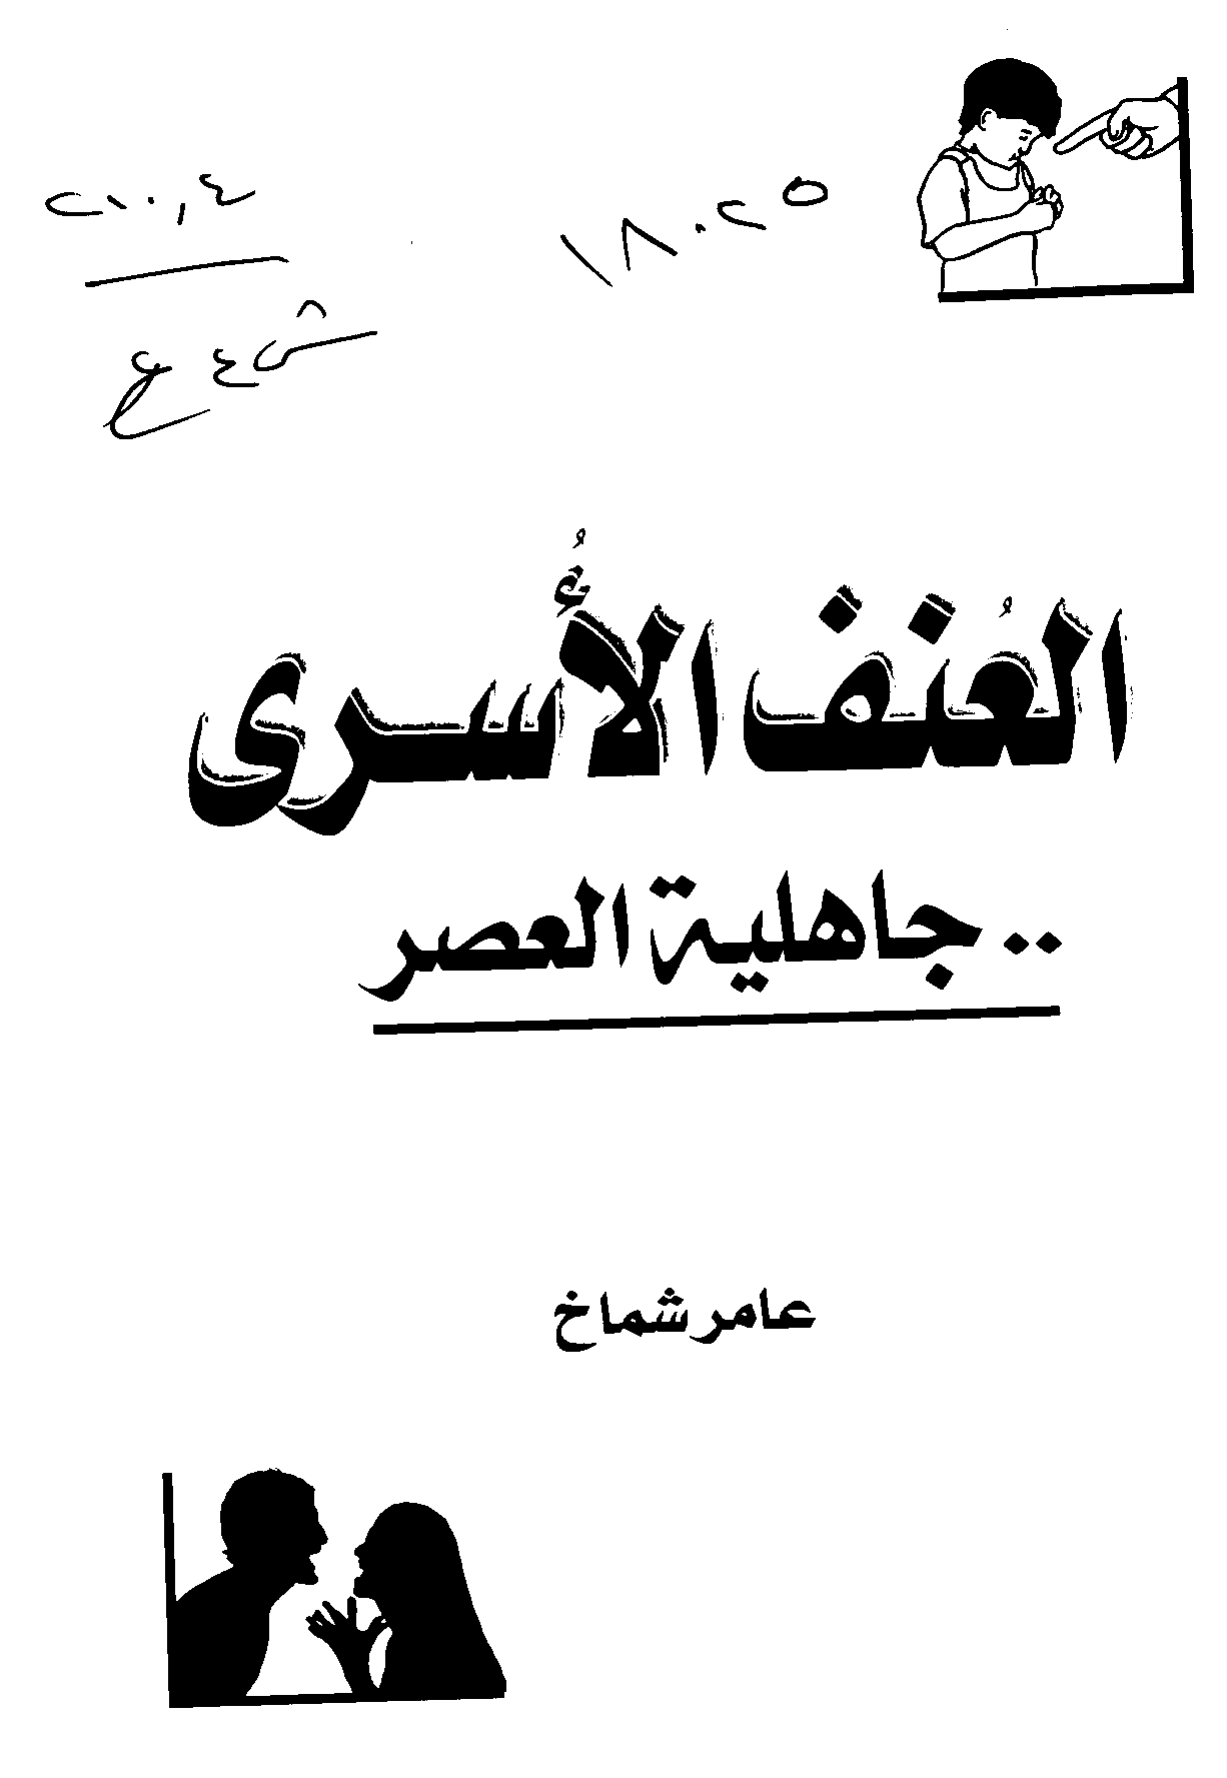 ٢١٠,٤
١٨٠٢٥
ش ع ع
العُنف الأُسرى
.. جاهلية العصر
عامر شماخ